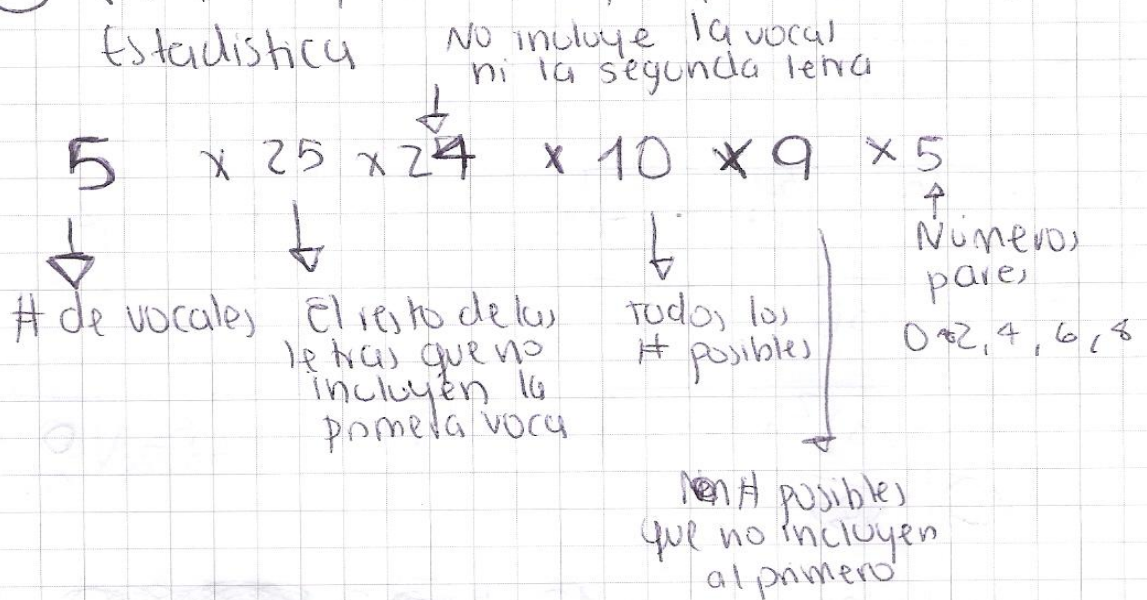 Estadistica
No incluye la vocal
ni la segunda letra
5 x 25 x 24 x 10 x 9 x 5
# de vocales
El resto de las
letras que no
incluyen la
primera voca
Todos los
# posibles
Números
pares
0 2, 4, 6, 8
# posibles
que no incluyen
al primero